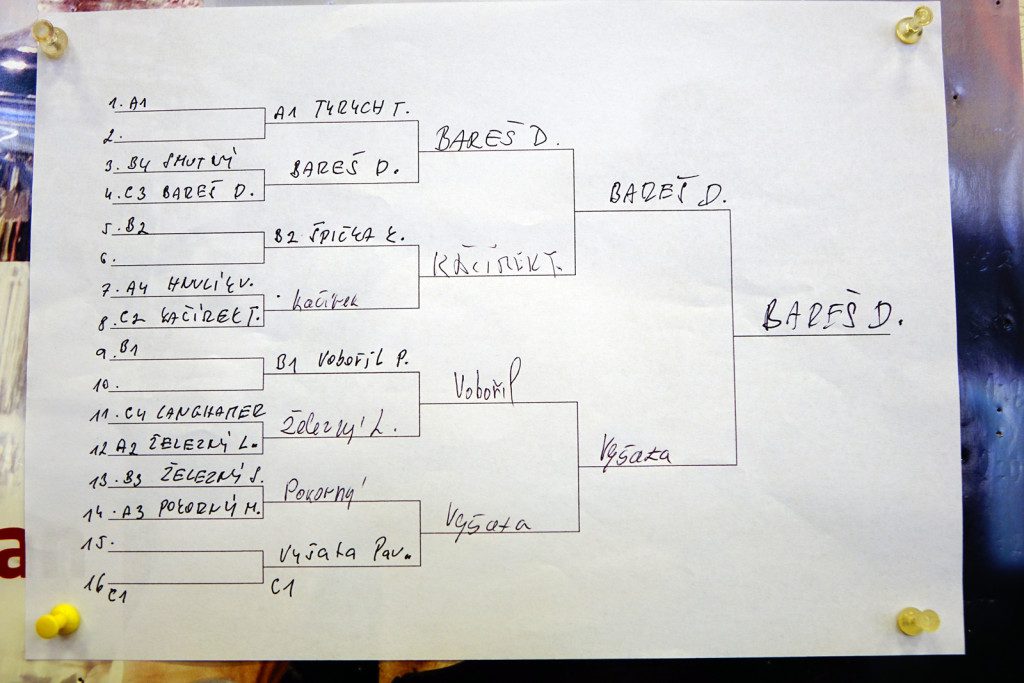 1. A1
2.
A1 TYRYCH T.
3. B4 SMUTNÝ
4. C3 BAREŠ D.
BAREŠ D.
BAREŠ D.
5. B2
6.
B2 ŠPIČKA K.
7. A4 HNULÍK V.
8. C2 KAČÍREK T.
Kačírek
KAČÍREK T.
BAREŠ D.
9. B1
10.
B1 Vobořil P.
11. C4 LANGHAMER
12 A2 ŽELEZNÝ L.
Železný L.
Vobořil
13. B3 ŽELEZNÝ S.
14. A3 POKORNÝ M.
Pokorný
15.
16 C1
Vyšata Pav.
C1
Vyšata
Vyšata
BAREŠ D.
a